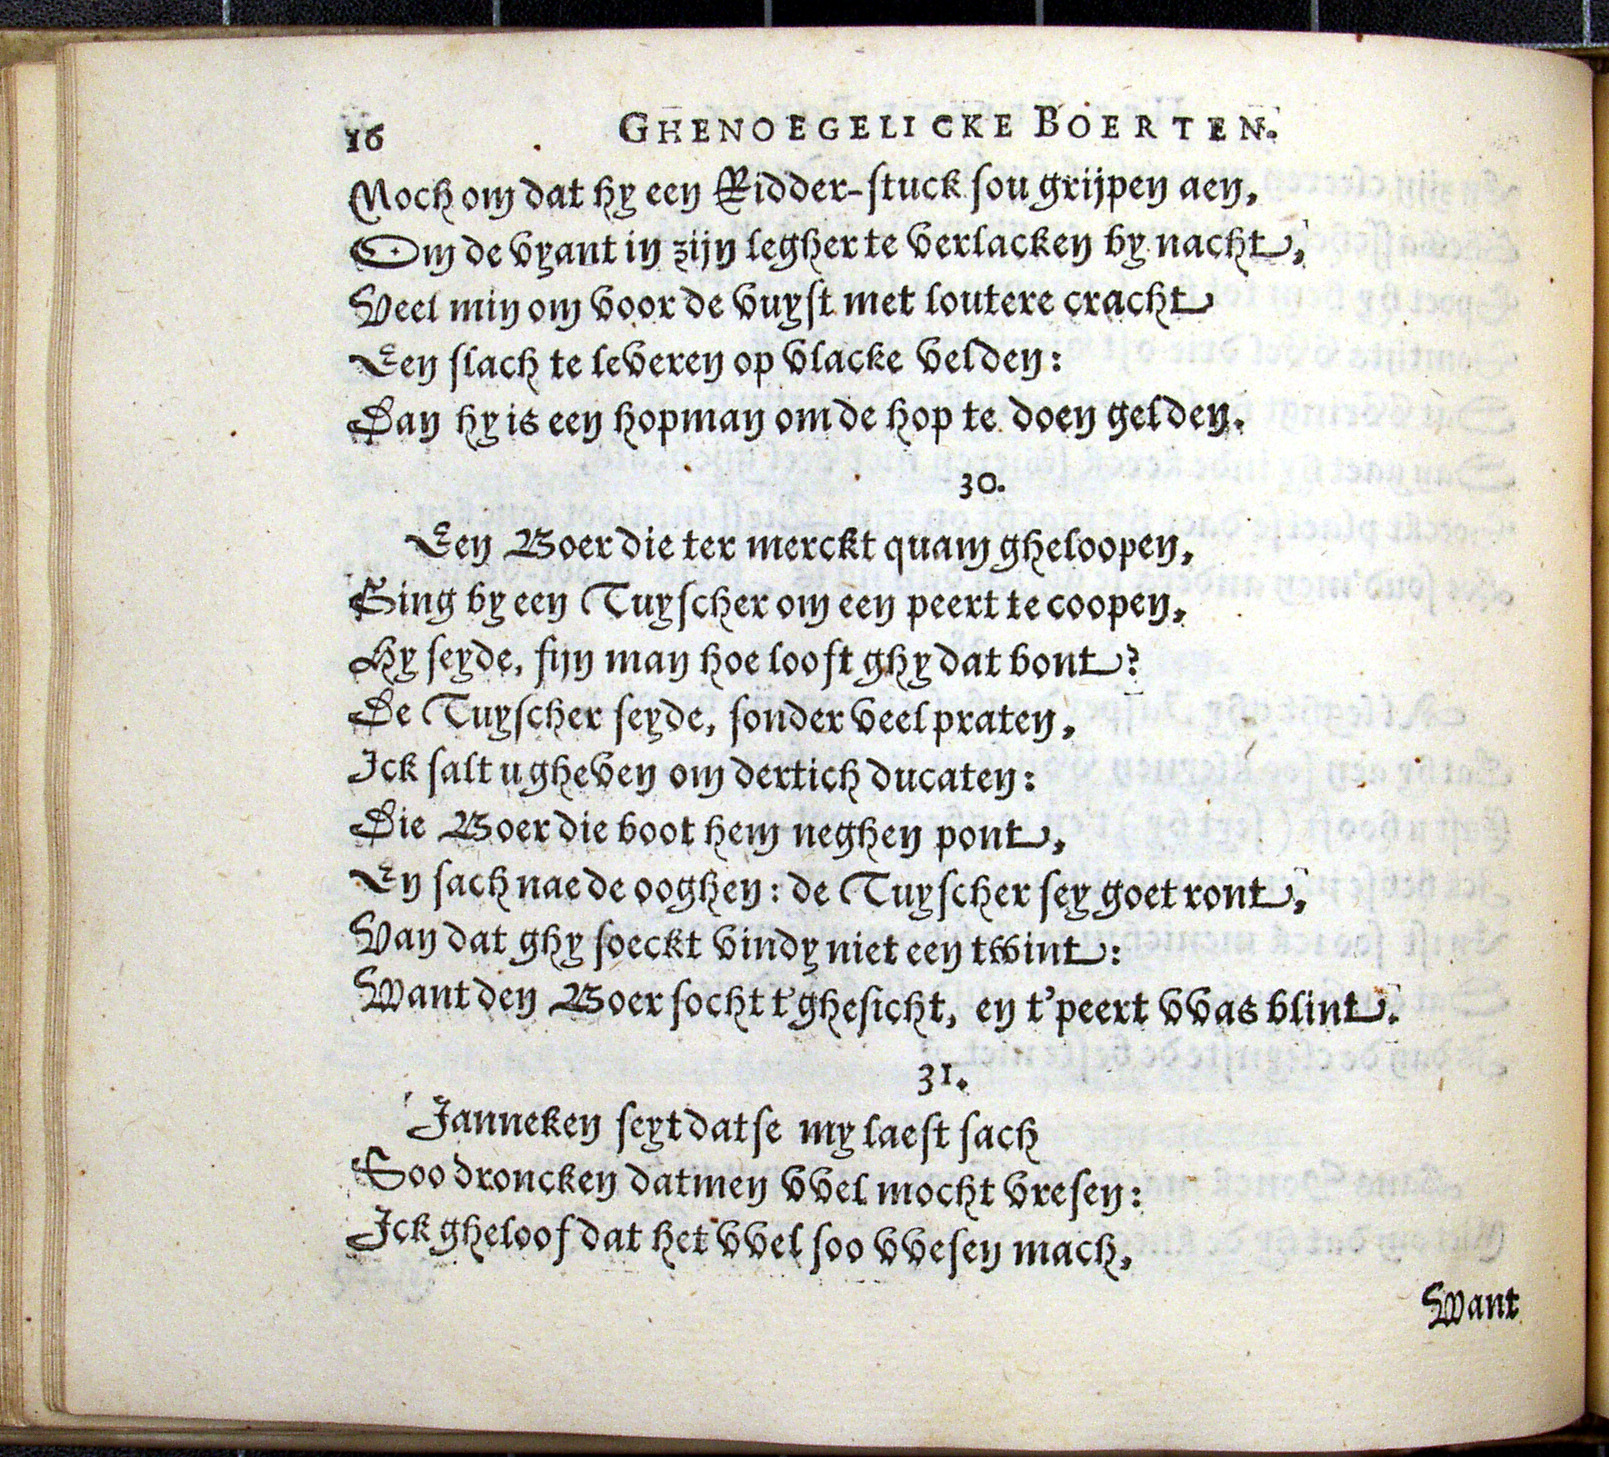 16 GHENOEGELICKE BOERTEN.
Noch om dat hy een Ridder-stuck sou grijpen aen,
Om de vyant in zijn legher te verlacken by nacht,
Veel min om voor de vuyst met loutere cracht
Een slach te leveren op vlacke velden:
Dan hy is een hopman om de hop te doen gelden.
30.
Een Boer die ter merckt quam gheloopen,
Ging by een Tuyscher om een peert te coopen,
Hy seyde, fijn man hoe looft ghy dat bont?
De Tuyscher seyde, sonder veel praten,
Ick salt u gheven om dertich ducaten:
Die Boer die boot hem neghen pont,
En sach nae de ooghen: de Tuyscher sey goet ront,
Van dat ghy soeckt vindy niet een twint:
Want den Boer socht t'ghesicht, en t'peert vvas blint.
31.
Janneken seyt datse my laest sach
Soo droncken datmen vvel mocht vresen:
Ick gheloof dat het vvel soo vvesen mach,
Want